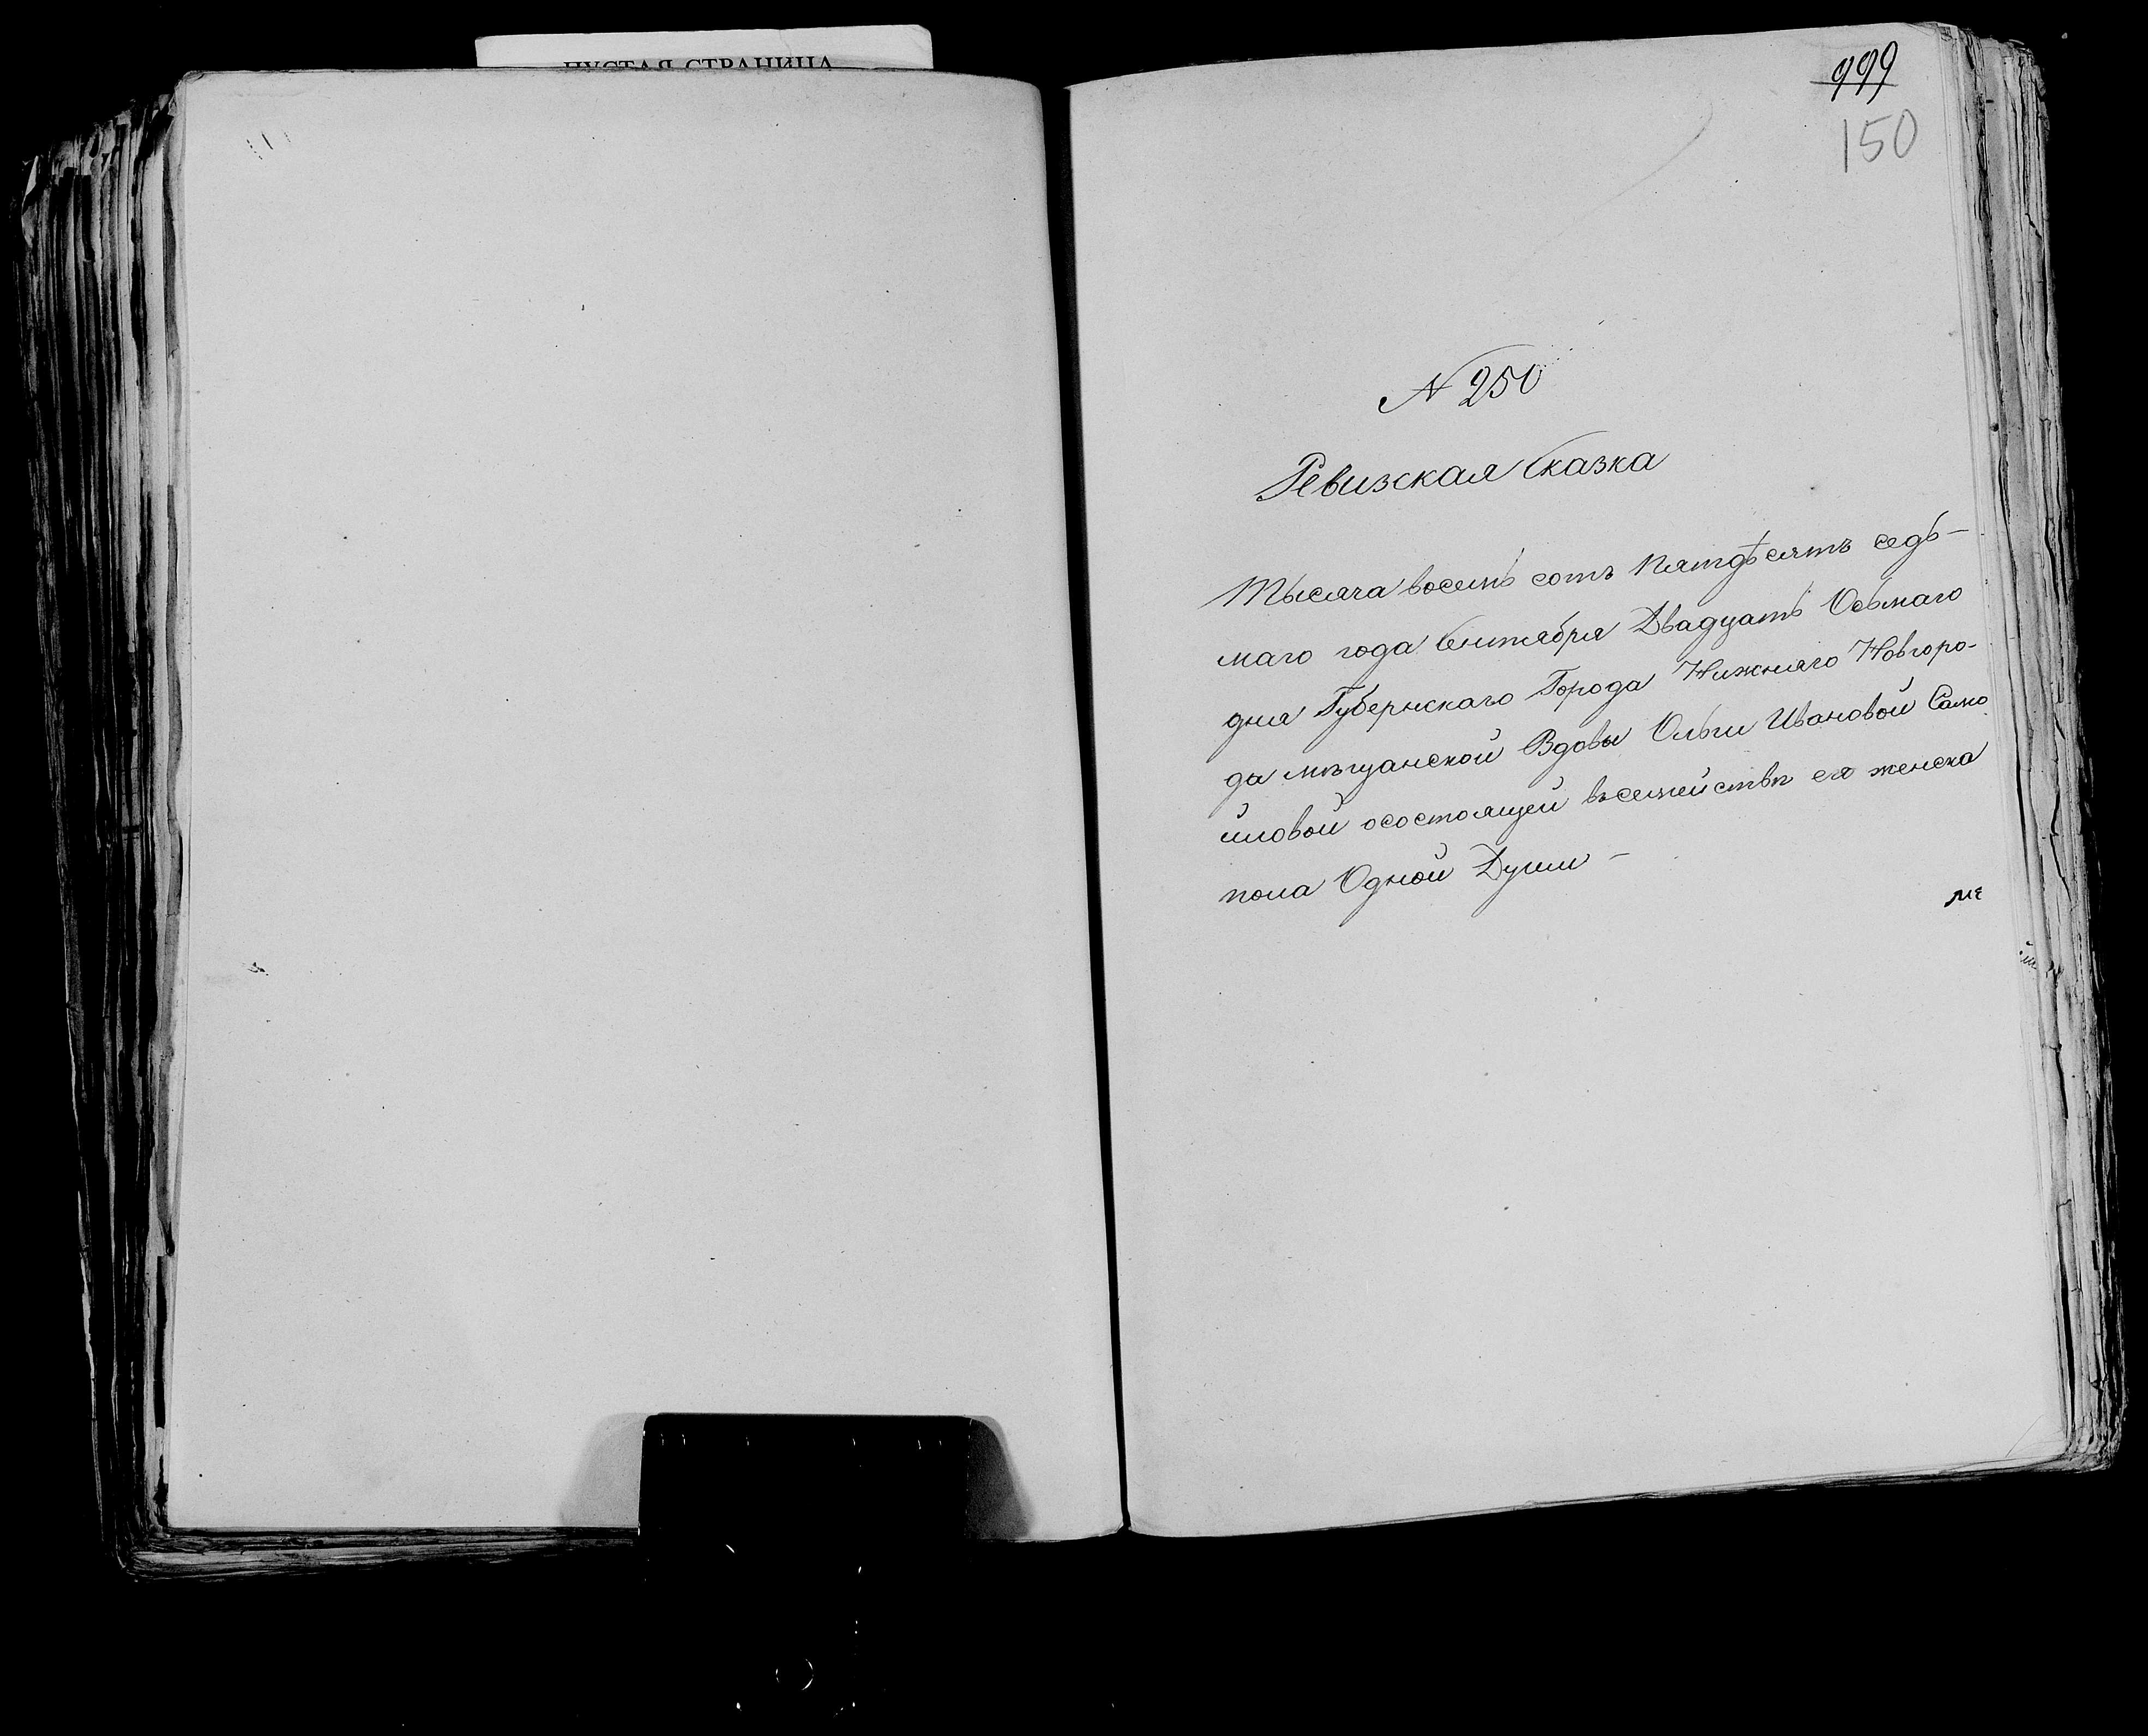 ПУСТАЯ СТРАНИЦА
999
150
N 250
Ревизская Сказка
Тысяча восемь сотъ Пятдѣсятъ седь-
маго года Сентября Двадцать Осьмаго
дня Губернскаго Города Нижняго Новгоро-
да мѣщанской Вдовы Ольги Ивановой Само
йловой осостоящей въсемействѣ ея женска
пола Одной Души -